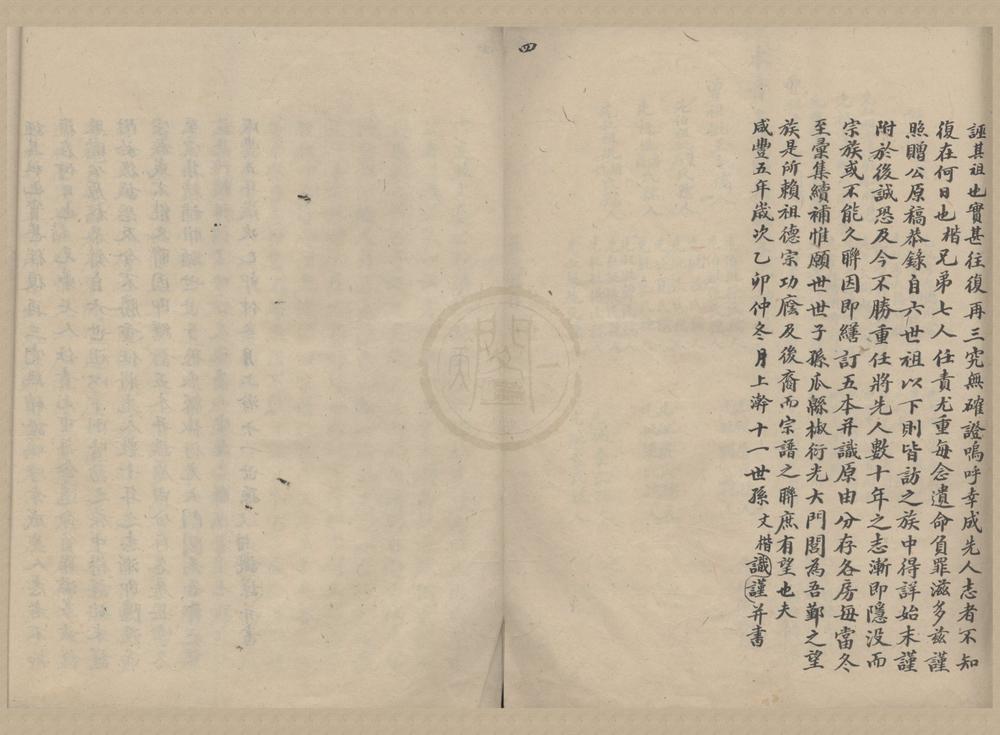 四
誣其祖也實甚往復再三究無確證嗚呼幸成先人志者不知
復在何日也楷兄弟七人任責尤重每念遺命負罪滋多茲謹
照贈公原稿恭錄自六世祖以下則皆訪之族中得詳始末謹
附於後誠恐及今不勝重任將先人數十年之志漸即隱沒而
宗族或不能久聯因即繕訂五本并識原由分存各房每當冬
至彙集續補惟願世世子孫瓜緜椒衍光大門閭為吾鄞之望
族是所賴祖德宗功廕及後裔而宗譜之聯庶有望也夫
咸豐五年歲次乙卯仲冬月上澣十一世孫文楷識謹并書